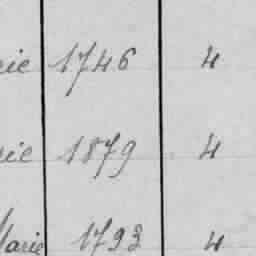 rie 1746 4
rie 1879 4
Marie 1793 4